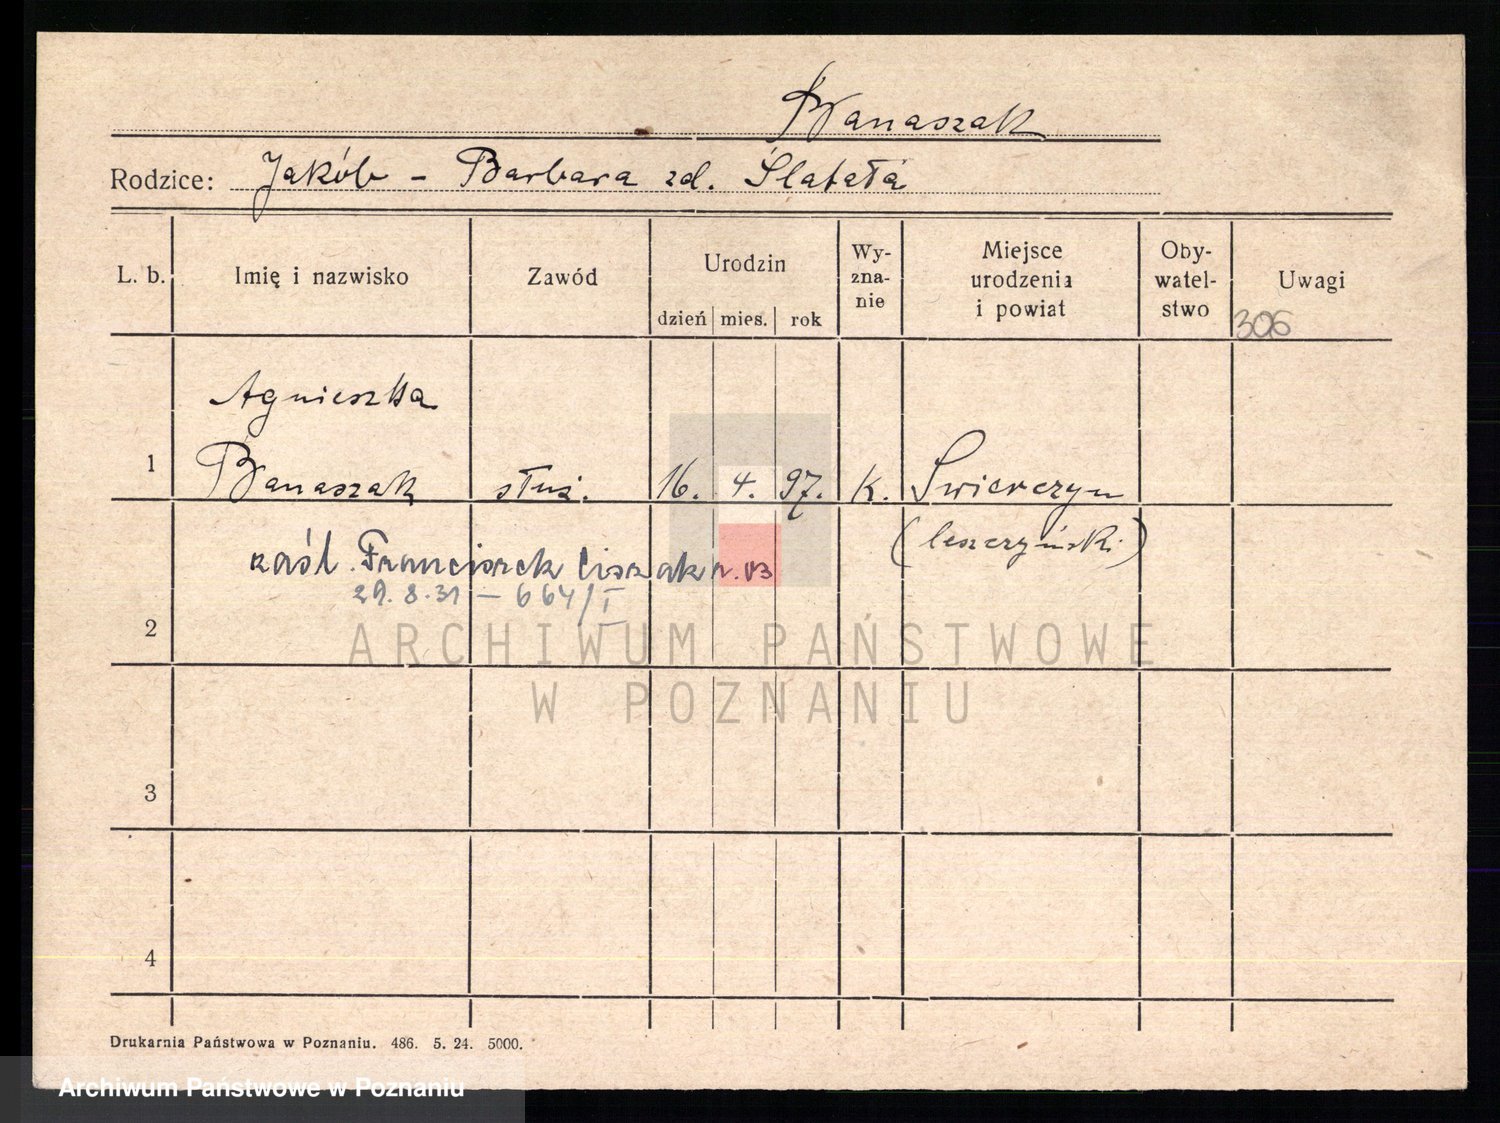 Banaszak
Rodzice: Jakób - Barbara zd. Ślatała
L. b. Imię i nazwisko Zawód Urodzin dzień mies. rok Wy-zna-nie Miejsce urodzenia i powiat Oby-watel-stwo Uwagi
306
Agnieszka
1 Banaszak służ. 16. 4. 97. k. Świerczyn
(leszczyński)
zaśl. Franciszek Ciszak
29.8.31 — 664/I
2
ARCHIWUM PAŃSTWOWE
W POZNANIU
3
4
Drukarnia Państwowa w Poznaniu. 486. 5. 24. 5000.
Archiwum Państwowe w Poznaniu